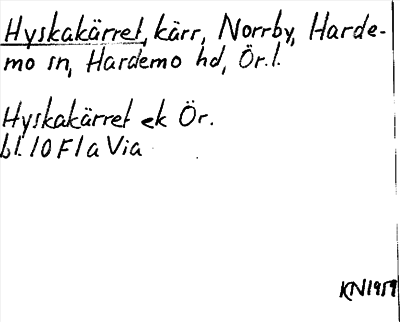 Hyskakärret, kärr, Norrby, Harde-
mo sn, Hardemo hd, Ör.l.
Hyskakärret ek Ör.
bl. 10 F 1 a Via
KN1959